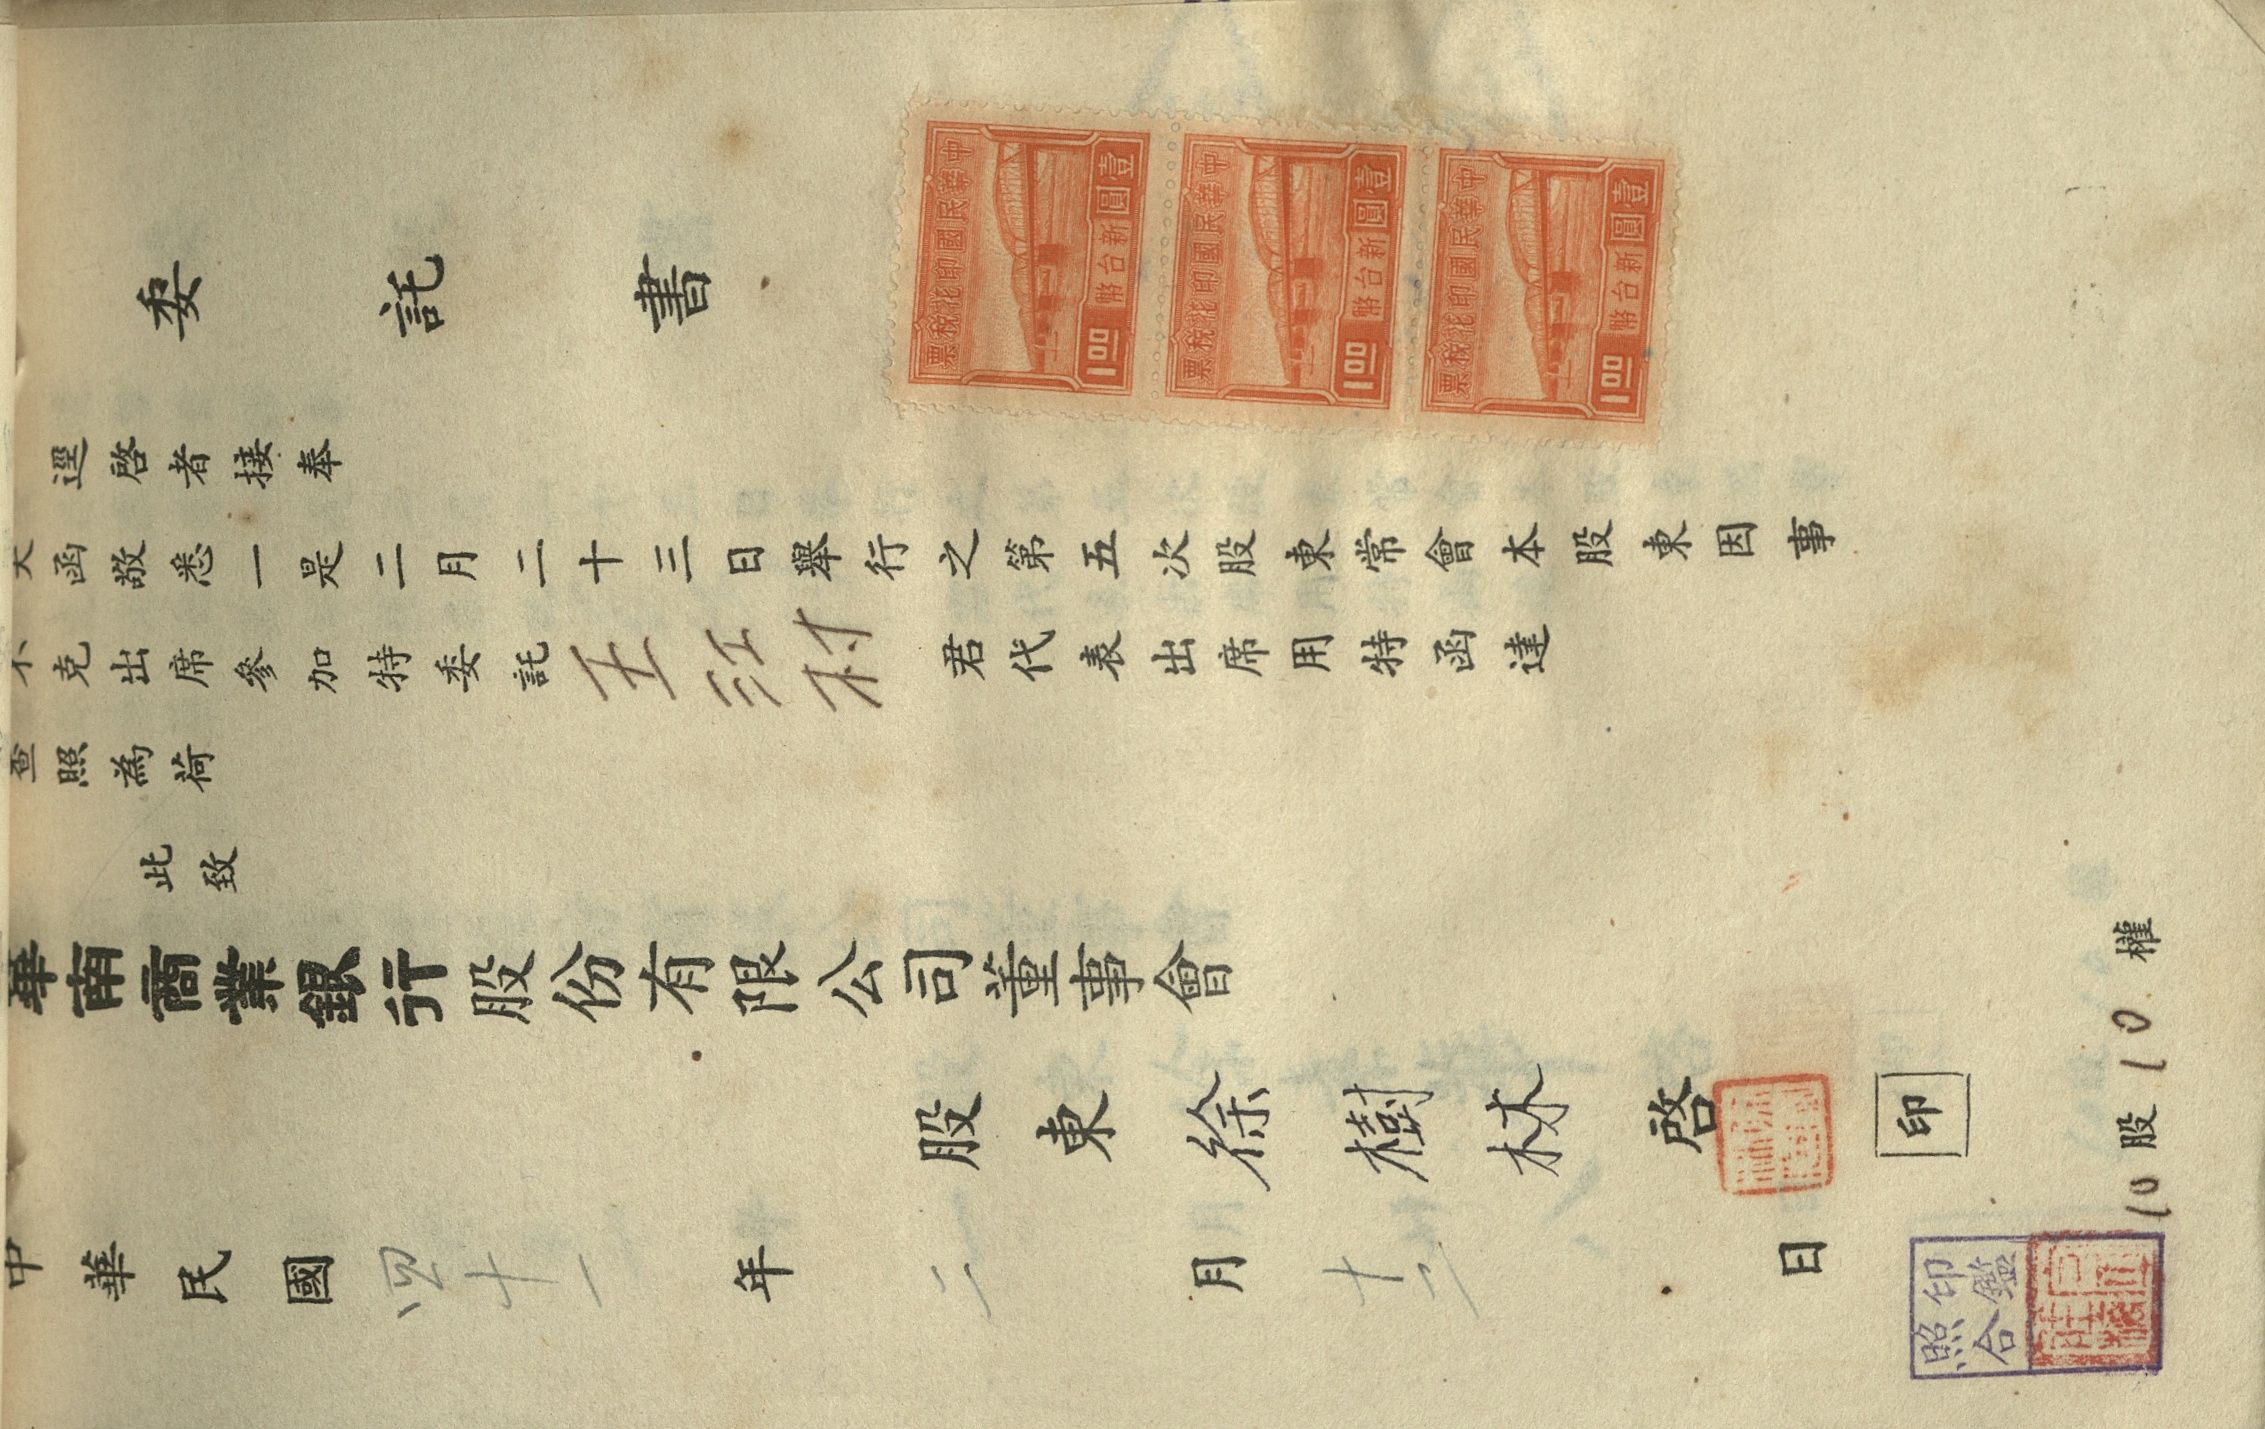 委託書
逕啓者接奉
大函敬悉一是二月二十三日舉行之第五次股東常會本股東因事
不克出席參加特委託王江村君代表出席用特函達
查照為荷
此致
華南商業銀行股份有限公司董事會
股東徐樹林啓
印
中華民國四十一年二月十二日
10股10權
印鑑照合
中華民國印花稅票
壹圓
新台幣
1.00
中華民國印花稅票
壹圓
新台幣
1.00
中華民國印花稅票
壹圓
新台幣
1.00